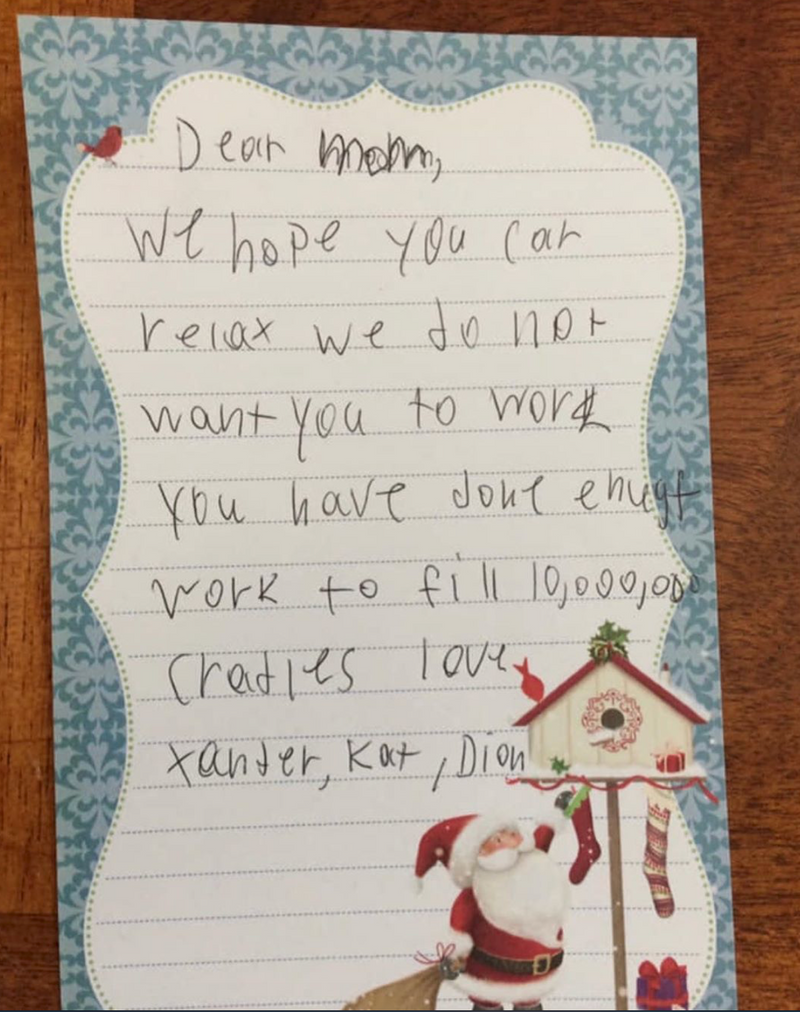 Dear mom,
We hope you can
relax we do not
want you to work
you have done enugh
work to fill 10,000,000
cradles love
xander, Kat, Dion